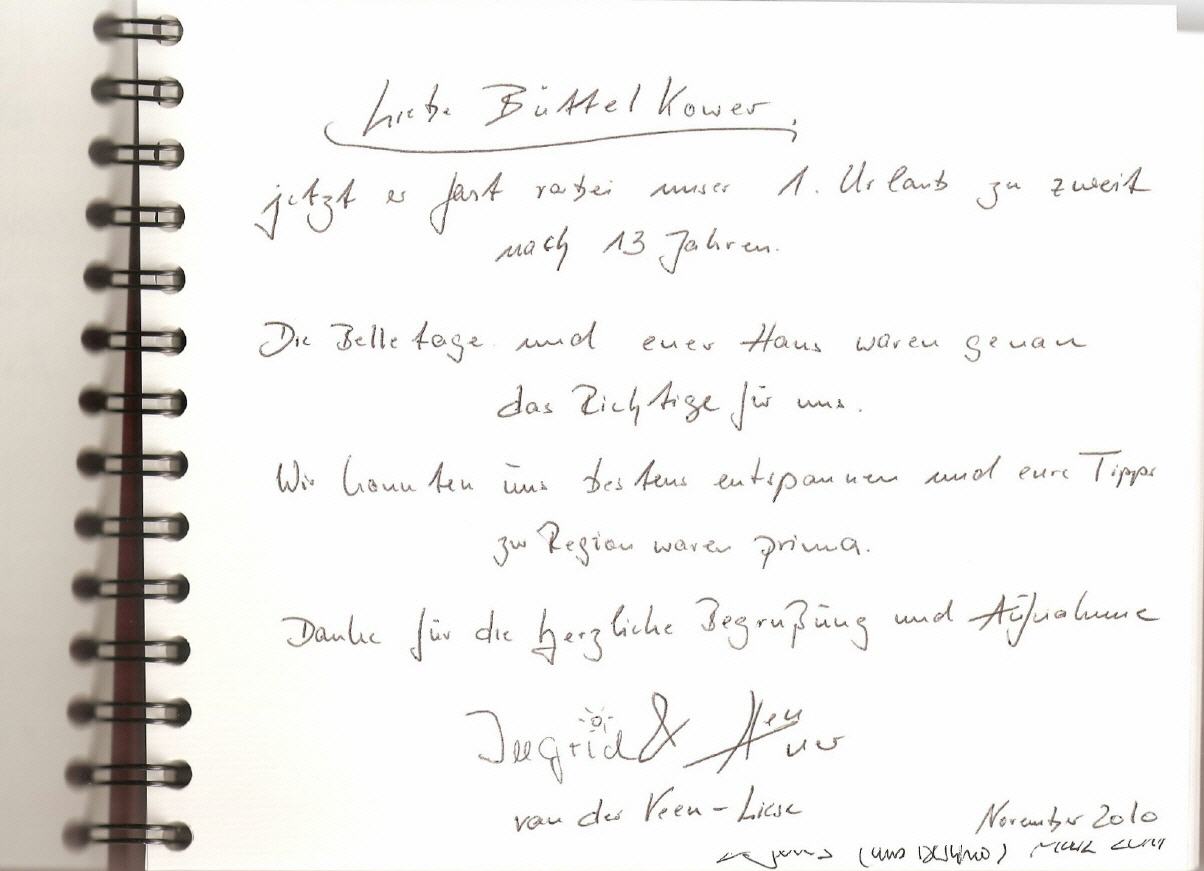 Liebe Büttelkower,
jetzt es fast vorbei unser 1. Urlaub zu zweit
nach 13 Jahren.
Die Belle tage und euer Haus waren genau
das Richtige für uns.
Wir konnten uns bestens entspannen und eure Tipps
zur Region waren prima.
Danke für die herzliche Begrüßung und Aufnahme
Ingrid &
van der Veen-Liese
November 2010
(und